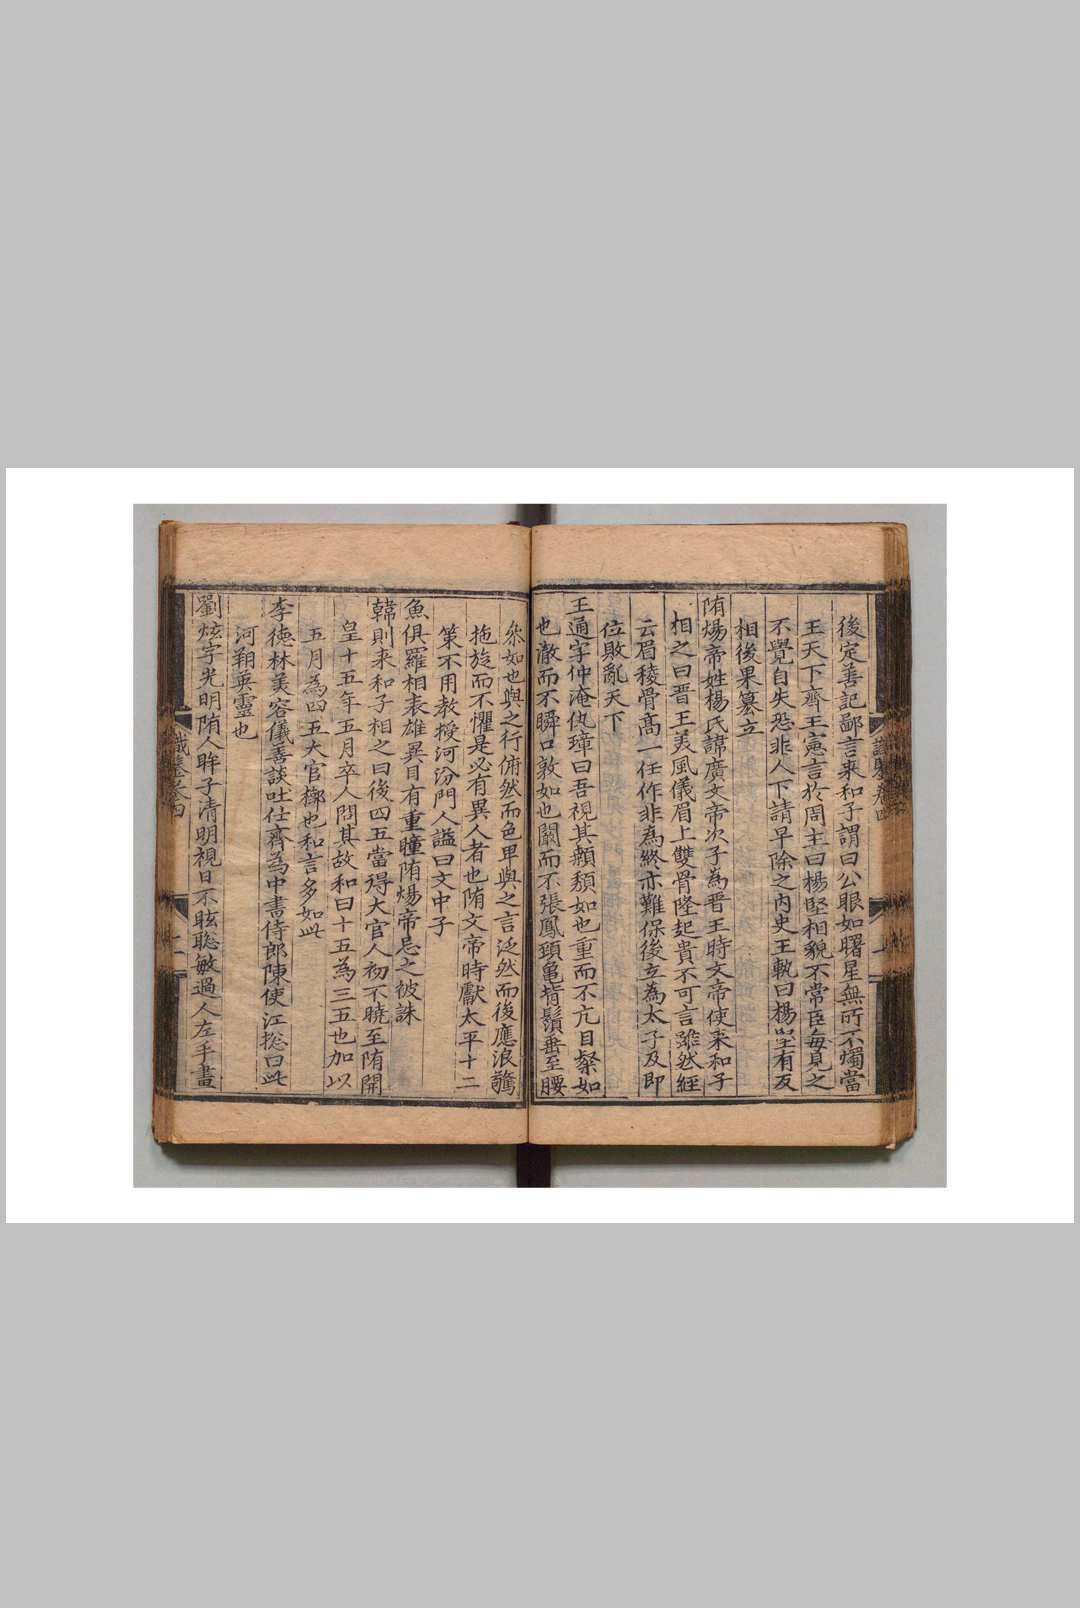 後定善記鄙言来和子謂曰公眼如曙星無所不燭當
王天下齊王憲言於周主曰楊堅相貌不常臣每見之
不覺自失恐非人下請早除之内史王軌曰楊堅有反
相後果篡立
隋煬帝姓楊氏諱廣文帝次子為晋王時文帝使来和子
相之曰晋王美風儀眉上雙骨隆起貴不可言雖然經
云眉稜骨高一任作非為終亦難保後立為太子及即
位敗亂天下
王通字仲淹仇璋曰吾視其顙頯如也重而不亢目粲如
也澈而不瞬口敦如也闊而不張鳳頸龜背鬚垂至腰
叅如也與之行俯然而色卑與之言泛然而後應浪驚
拖旋而不懼是必有異人者也隋文帝時獻太平十二
策不用教授河汾門人謚曰文中子
魚俱羅相表雄異目有重瞳隋煬帝忌之被誅
韓則来和子相之曰後四五當得大官人初不曉至隋開
皇十五年五月卒人問其故和曰十五為三五也加以
五月為四五大官槨也和言多如此
李德林美容儀善談吐仕齊為中書侍郎陳使江揔曰此
河朔英靈也
劉炫字光明隋人眸子清明視日不眩聡敏過人左手畫